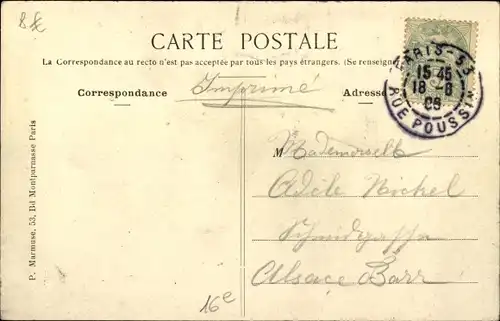 8 fc
CARTE POSTALE
La Correspondance au recto n'est pas acceptée par tous les pays étrangers. (Se renseigner
Correspondance
Imprimé
Adresse
PARIS-53
15 45
18-6
05
RUE POUSSIN
M
Mademoiselle
Adèle Nichel
Schmidgasse
Alsace Barr
16e
P. Marmuse, 53, Bd Montparnasse Paris